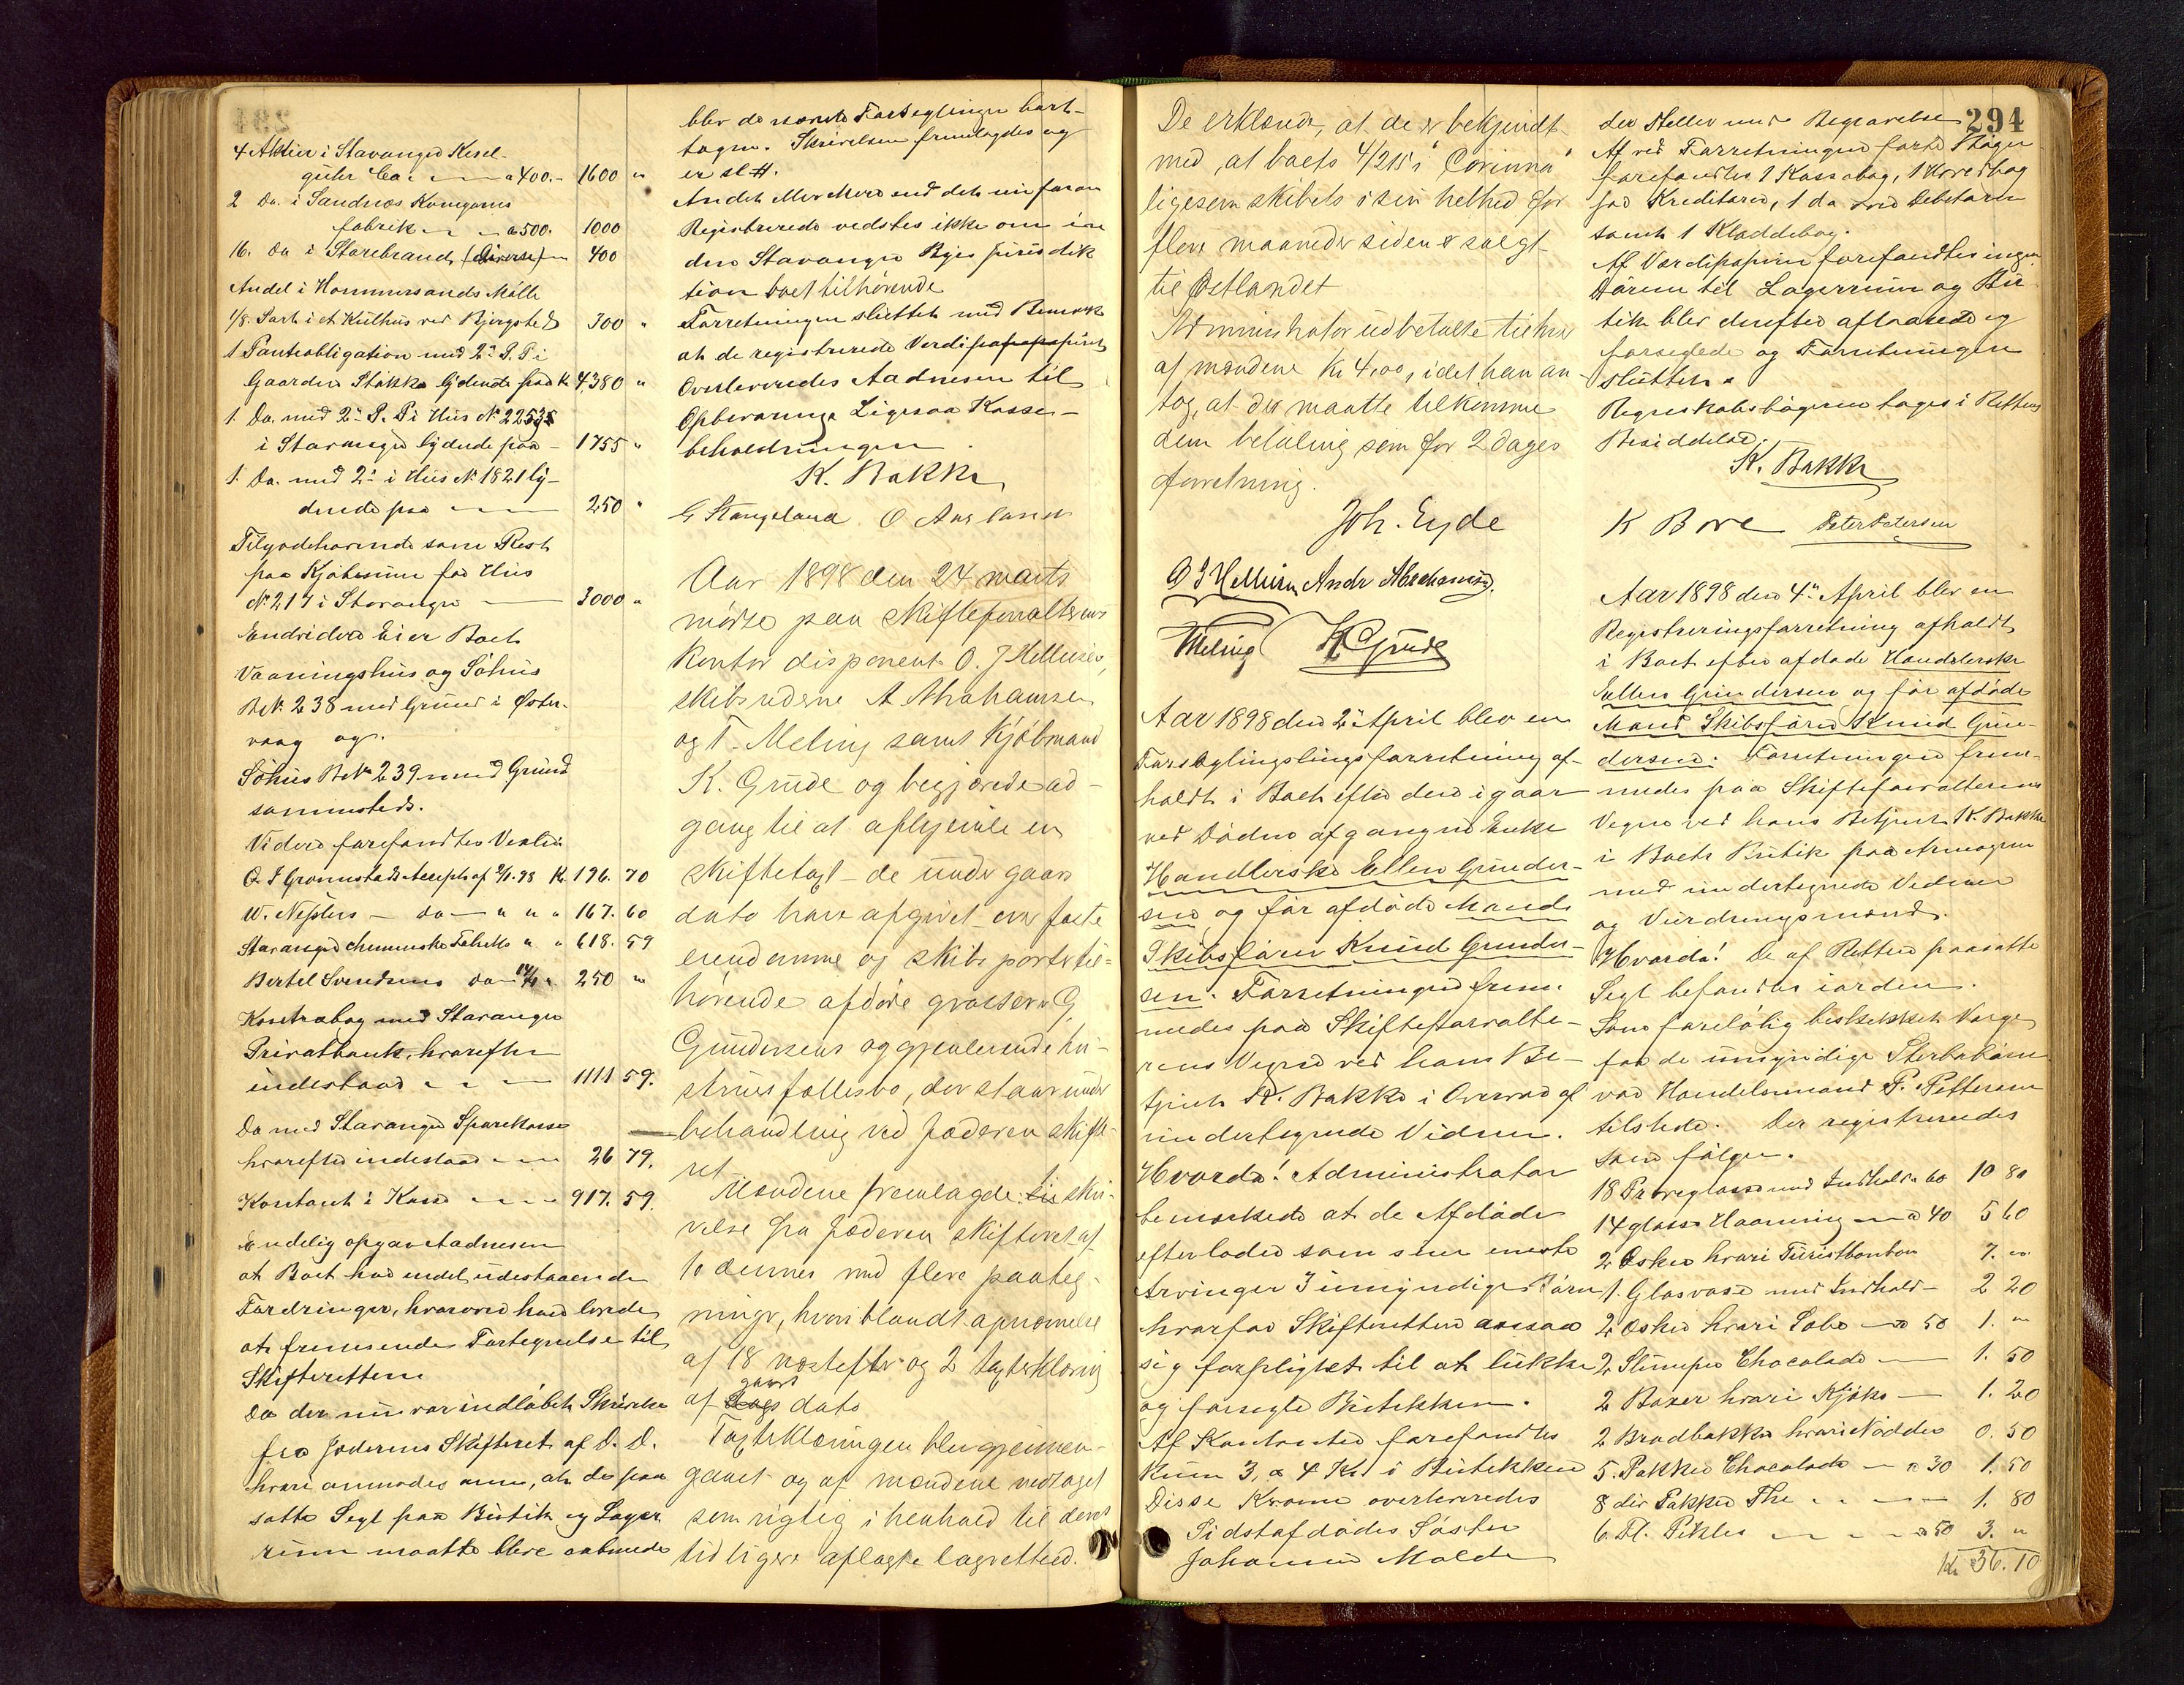 4 Aktier i Stavanger Kesel-
gühr Co. a 400.- 1600 "
2 Do. i Sandnæs Kamgarns
fabrik a 500. 1000
16. Do i Storebrand (diverse) 400
Andel i Hommersands Mølle
1/8. Part i et Kulhus ved Bjergsted 300 "
1 Panteobligation med 2den P. P i
Gaarden Stokka lydende paa K 4380 "
1. Do. med 2den P. P i Hus No 2253
i Stavanger lydende paa - 1755 "
1. Do. med 2den i Hus No 1821 ly-
dende paa 250 "
Tilgodehavende som Rest
paa Kjøbesum for Hus
No 217 i Stavanger 3000 "
Endvidere Eier Boet
Vaaningshus og Søhus
B No 238 med Grund i Øster-
vaag og
Søhus B No 239 med Grund
sammesteds.
Videre forefandtes Vexler:
O. J Grønnstads Accept af 2/1. 98 K. 196. 70
W. Nesslers - do - " " " 167. 60
Stavanger chemiske Fabriks " " 618. 59
Bertel Svendsens do 250 "
Kontrabog med Stavanger
Privatbank, hvorefter
indestaar 1111 59.
Do med Stavanger Sparekasse
hvorefter indestaar 26 79.
Kontant i Kasse 917. 59.
Endelig opgav Aadnesen
at Boet har endel udestaaende
Fordringer, hvorover han lovede
at fremsende Fortegnelse til
Skifteretten
Da der nu var indløbet Skrivelse
fra Jæderens Skifteret af D. D.
hvori anmodes om, at de paa
satte Segl paa Butik og Lager
rum maatte blive aabnede
blev de nævnte Forseglinger bort-
tagne. Skrivelsen fremlagdes og
er sl. H.
Andet eller Mere end det nu foran
Registrerede vedstes ikke om in
den Stavanger Byes Jurisdik
tion boet tilhørende
Forretningen sluttet med Bemærkn
at de registrerede Verdipapirer
Overleveredes Aadnesen til
Opbevaring. Ligesaa Kasse-
beholdningen.
K. Bakke
G Stangeland. O Aasland
Aar 1898 den 24 marts
mødte paa skifteforvalterens
kontor disponent O. J Hellesen,
skibsrederne A Abrahamsen
og T. Meling samt kjøbmand
K. Grude og begjærede ad-
gang til at afhjemle en
skiftetaxt de under gaars
dato have afgivet over faste
eiendomme og skibsparter til-
hørende afdøde grosserer G.
Gundersens og gjenlevende hu-
strues fællesbo, der staar under
behandling ved Jæderen skifte-
ret
Mændene fremlagde skri-
velse fra Jæderen skifteret af
10 dennes med flere paateg-
ninger, hvoriblandt opnævnelse
af 18 næstefter og 2 taxterklæring
af gaars dato
Taxterklæringen blev gjennem-
gaaet og af mændene vedtaget
som rigtig i henhold til deres
tidligere aflagte lagrettesed.
294
De erklærede, at de er bekjendt
med, at boets 4/215 i "Corinna"
ligesom skibets i sin helhed for
flere maaneder siden er solgt
til Østlandet
Administrator udbetalte til hver
af mændene Kr 4,00, idet han an-
tog, at der maatte tilkomme
dem betaling som for 2 dages
forretning.
Joh. Eyde
O J Hellesen Andr Abrahamsen.
T Meling K Grude
Aar 1898 den 2den April blev en
Forseglingslingsforretning af-
holdt i Boet efter den igaar
ved Døden afgangne Enke
Handlerske Ellen Gunder-
sen og før afdøde Mand
Skibsfører Knud Gunder-
sen. Forretningen frem-
medes paa Skifteforvalte-
rens Vegne ved hans Be-
tjent K. Bakke i Overvær af
undertegnede Vidner.
Hvorda! Administrator
bemærkede at de Afdøde
efterlader som sine eneste
Arvinger 3 umyndige Børn
hvorfor Skifteretten ansaa
sig forpligtet til at lukke
og forsegle Butikken.
Af Kontanter forefandtes
kun 3, a 4 Kr. i Butikken
Disse Kroner overleveredes
Sidstafdødes Søster
Johanne Molde
der steller med Begravelsen
Af ved Forretningen førte Bøger
forefandtes 1 Kassabog, 1 Hovedbog
for Kreditorer, 1 do over Debitorer
samt 1 Kladdebog.
Af Værdipapirer forefandtes ingen
Døren til Lagerrum og Bu-
tik blev derefter aflaasede og
forseglede og Forretningen
sluttet.
Regnskabsbøgerne toges i Rettens
Besiddelse.
K. Bakke
K Bore Peter Petersen
Aar 1898 den 4de April blev en
Registreringsforretning afholdt
i Boet efter afdøde Handlerske
Ellen Gundersen og før afdøde
Mand Skibsfører Knud Gun-
dersen. Forretningen frem-
medes paa Skifteforvalterens
Vegne ved hans Betjent K. Bakke
i Boets Butik paa
med undertegnede Vidner
og Vurdringsmænd.
Hvorda! De af Retten paasatte
Segl befandtes iorden.
Som foreløbig beskikket Værge
for de umyndige Sterbobørn
var Handelsmand P. Pettersen
tilstede. Der registreredes
som følger.
18 Prøveglasse med Indhold a 60 10 80
14 glasse Honning a 40 5 60
2 Esker hvori Turistbonbon 7. "
1. Glasvase med Indhold - 2 20
2 Esker hvori Sæbe a 50 1. "
2 Stumper Chocolade 1. 50
2 Boxer hvori Kjæks 1. 20
2 Brødbakker hvori Nødder 0. 50
5. Pakker Chocolade a 30 1. 50
8 div Pakker The 1. 80
6. Fl. Pikles a 50 3. "
Kr 36. 10